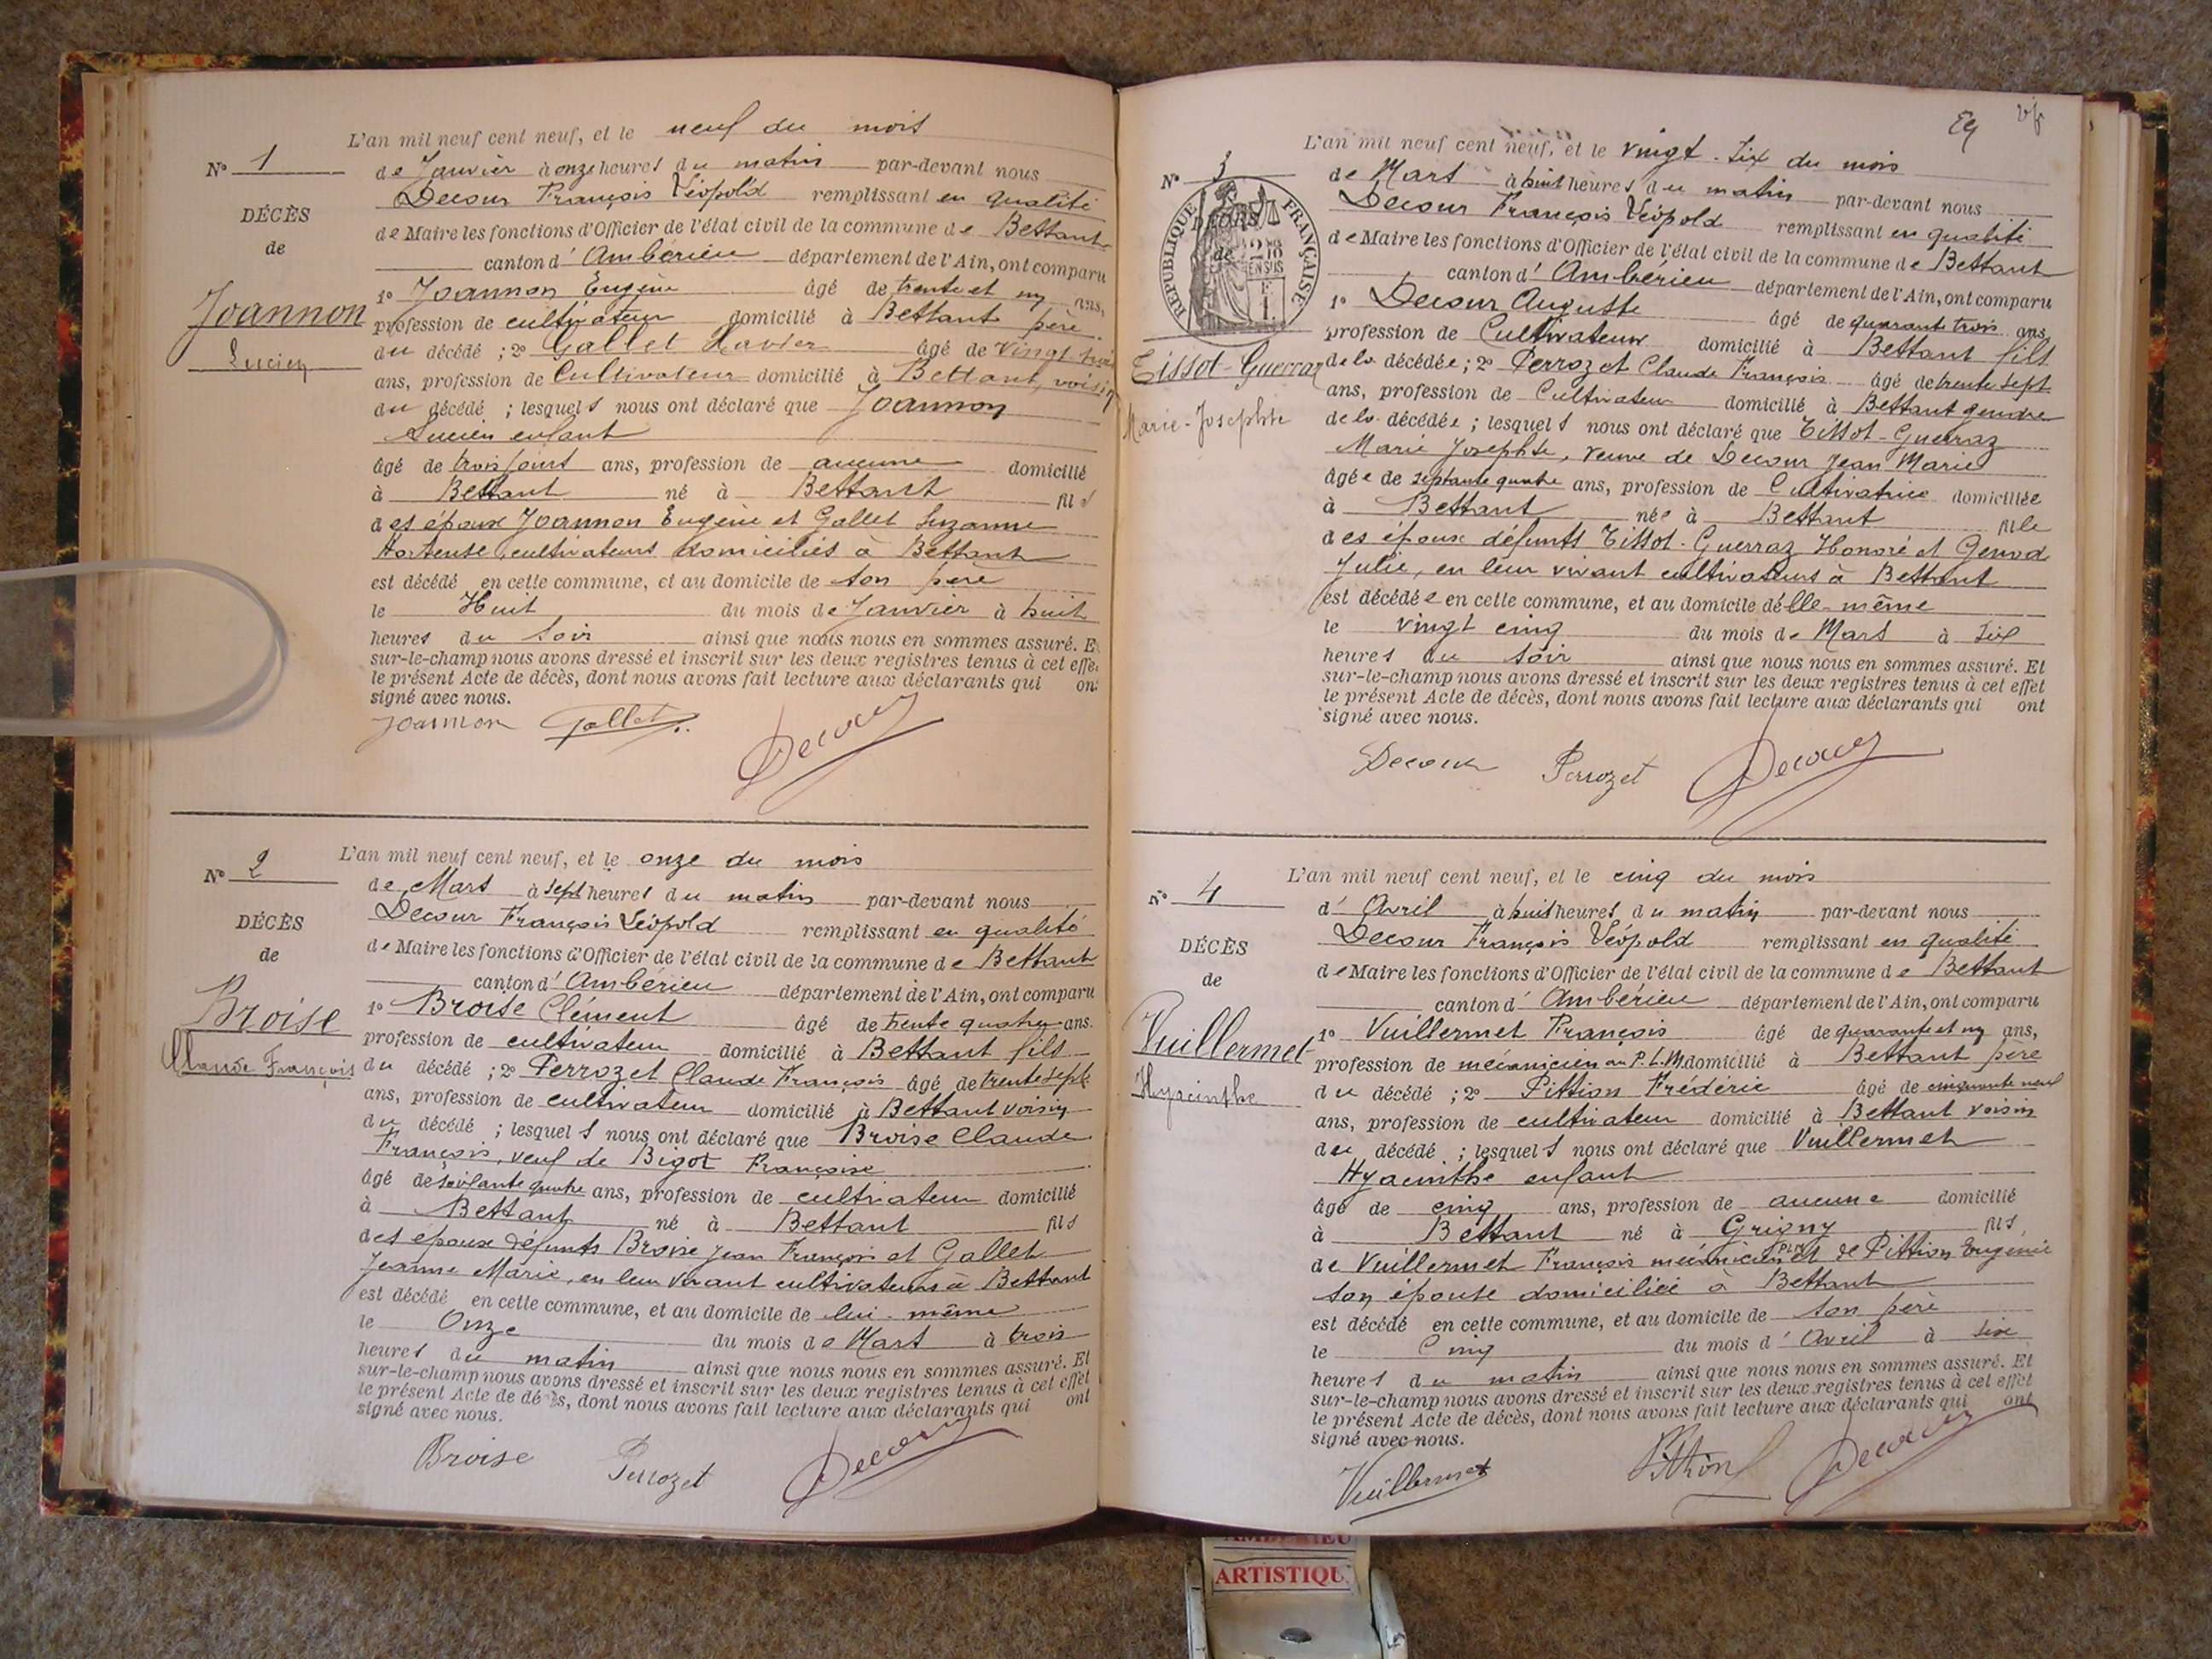 L'an mil neuf cent neuf, et le neuf du mois
N° 1
de Janvier à onze heures du matin par-devant nous
Decour François Léopold remplissant en qualité
DÉCÈS
de Maire les fonctions d'Officier de l'état civil de la commune de Bettant
de
canton d'Ambérieu département de l'Ain, ont comparu
1° Joannon Eugène âgé de trente et un ans,
Joannon
profession de cultivateur domicilié à Bettant père
Lucien
du décédé ; 2° Gallet Xavier âgé de vingt
ans, profession de Cultivateur domicilié à Bettant, voisin
du décédé ; lesquels nous ont déclaré que Joannon
Lucien enfant
âgé de trois jours ans, profession de aucune domicilié
à Bettant né à Bettant fils
des époux Joannon Eugène et Gallet Suzanne
Hortense, cultivateurs domiciliés à Bettant
est décédé en cette commune, et au domicile de son père
le Huit du mois de Janvier à huit
heures du soir ainsi que nous nous en sommes assuré. E
sur-le-champ nous avons dressé et inscrit sur les deux registres tenus à cet effe
le présent Acte de décès, dont nous avons fait lecture aux déclarants qui on
signé avec nous.
Joannon Gallet Decour
L'an mil neuf cent neuf, et le onze du mois
N° 2
de Mars à sept heures du matin par-devant nous
Decour François Léopold remplissant en qualité
DÉCÈS
de Maire les fonctions d'Officier de l'état civil de la commune de Bettant
de
canton d'Ambérieu département de l'Ain, ont comparu
1° Broise Clément âgé de trente quatre ans.
Broise
profession de cultivateur domicilié à Bettant fils
Claude François
du décédé ; 2° Perrozet Claude François âgé de trente sept
ans, profession de cultivateur domicilié à Bettant voisin
du décédé ; lesquels nous ont déclaré que Broise Claude
François, veuf de Bigot Françoise
âgé de soixante quatre ans, profession de cultivateur domicilié
à Bettant né à Bettant fils
des époux défunts Broise Jean François et Gallet
Jeanne Marie, en leur vivant cultivateurs à Bettant
est décédé en cette commune, et au domicile de lui-même
le Onze du mois de Mars à trois
heures du matin ainsi que nous nous en sommes assuré. Et
sur-le-champ nous avons dressé et inscrit sur les deux registres tenus à cet effet
le présent Acte de décès, dont nous avons fait lecture aux déclarants qui ont
signé avec nous.
Broise Perrozet Decour
L'an mil neuf cent neuf, et le vingt-six du mois
N° 3
de Mars à huit heures du matin par-devant nous
Decour François Léopold remplissant en qualité
RÉPUBLIQUE FRANÇAISE
DÉCÈS
de
de Maire les fonctions d'Officier de l'état civil de la commune de Bettant
canton d'Ambérieu département de l'Ain, ont comparu
1° Decour Auguste âgé de quarante trois ans,
profession de Cultivateur domicilié à Bettant fils
Tissot-Guerraz
de la décédée ; 2° Perrozet Claude François âgé de trente sept
ans, profession de Cultivateur domicilié à Bettant gendre
Marie-Josephte
de la décédée ; lesquels nous ont déclaré que Tissot-Guerraz
Marie Josephte, veuve de Decour Jean Marie
âgée de septante quatre ans, profession de Cultivatrice domiciliée
à Bettant née à Bettant fille
des époux défunts Tissot-Guerraz Honoré et Genod
Julie, en leur vivant cultivateurs à Bettant
est décédée en cette commune, et au domicile d'elle-même
le vingt cinq du mois de Mars à six
heures du soir ainsi que nous nous en sommes assuré. Et
sur-le-champ nous avons dressé et inscrit sur les deux registres tenus à cet effet
le présent Acte de décès, dont nous avons fait lecture aux déclarants qui ont
signé avec nous.
Decour Perrozet Decour
L'an mil neuf cent neuf, et le cinq du mois
N° 4
d'Avril à huit heures du matin par-devant nous
Decour François Léopold remplissant en qualité
DÉCÈS
de Maire les fonctions d'Officier de l'état civil de la commune de Bettant
de
canton d'Ambérieu département de l'Ain, ont comparu
1° Vuillermet François âgé de quarante et un ans,
Vuillermet
profession de mécanicien au P.L.M. domicilié à Bettant père
Hyacinthe
du décédé ; 2° Pittion Frédéric âgé de cinquante neuf
ans, profession de cultivateur domicilié à Bettant voisin
du décédé ; lesquels nous ont déclaré que Vuillermet
Hyacinthe enfant
âgé de cinq ans, profession de aucune domicilié
à Bettant né à Grigny fils
de Vuillermet François mécanicien PLM et de Pittion Eugénie
son épouse domiciliée à Bettant
est décédé en cette commune, et au domicile de son père
le Cinq du mois d'Avril à six
heures du matin ainsi que nous nous en sommes assuré. Et
sur-le-champ nous avons dressé et inscrit sur les deux registres tenus à cet effet
le présent Acte de décès, dont nous avons fait lecture aux déclarants qui ont
signé avec nous.
Vuillermet Pittion Decour
ARTISTIQU